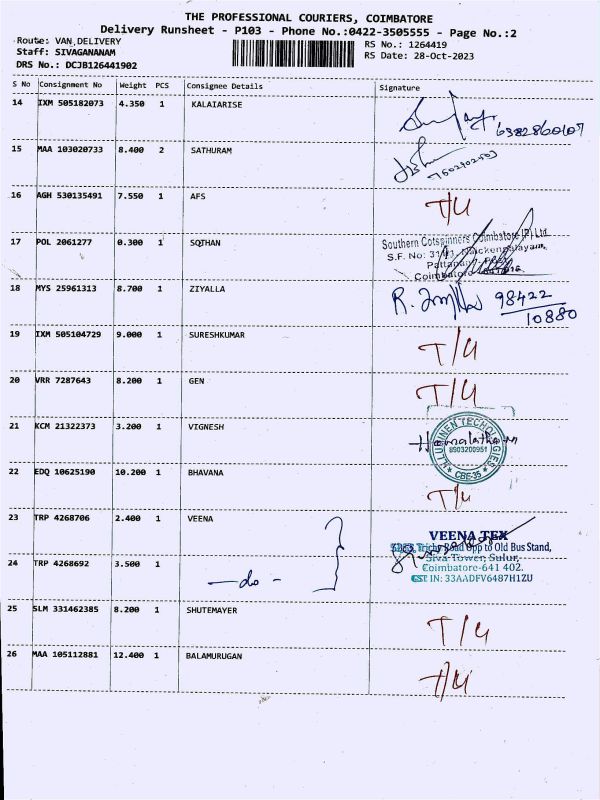 THE PROFESSIONAL COURIERS, COIMBATORE
Delivery Runsheet - P103 - Phone No.:0422-3505555 - Page No.:2
Route: VAN,DELIVERY
Staff: SIVAGANANAM
DRS No.: DCJB126441902
RS No.: 1264419
RS Date: 28-Oct-2023
S No Consignment No Weight PCS Consignee Details Signature
14 IXM 505182073 4.350 1 KALAIARISE
6382860107
15 MAA 103020733 8.400 2 SATHURAM
16 AGH 530135491 7.550 1 AFS T/U
17 POL 2061277 0.300 1 SQTHAN
Southern Cotspinners Coimbatore (P) Ltd
S.F. No: Naickenpalayam,
Coimbatore
18 MYS 25961313 8.700 1 ZIYALLA R. 98422
10880
19 IXM 505104729 9.000 1 SURESHKUMAR T/U
20 VRR 7287643 8.200 1 GEN T/U
21 KCM 21322373 3.200 1 VIGNESH
8903200951
CBE-35
22 EDQ 10625190 10.200 1 BHAVANA T/U
23 TRP 4268706 2.400 1 VEENA
VEENA TEX
Trichy Road Opp to Old Bus Stand,
Siva Tower, Sulur,
Coimbatore-641 402.
GST IN: 33AADFV6487H1ZU
24 TRP 4268692 3.500 1 — do -
25 SLM 331462385 8.200 1 SHUTEMAYER T/U
26 MAA 105112881 12.400 1 BALAMURUGAN T/U